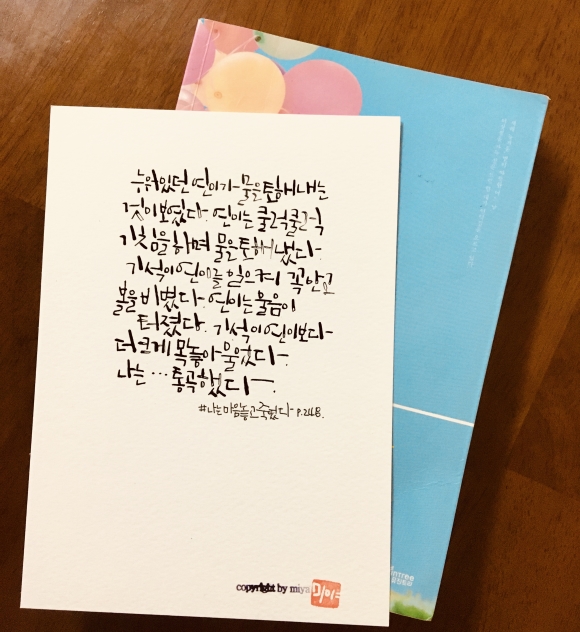 누워있던 연이가 물을 토해내는
것이 보였다. 연이는 쿨럭쿨럭
기침을 하며 물을 토해 냈다.
기석이 연이를 일으켜 꼭 안고
볼을 비볐다. 연이는 울음이
터졌다. 기석이 연이보다
더 크게 목놓아 울었다.
나는 ··· 통곡했다.
#나는마음놓고죽었다 P.248.
copyright by miya